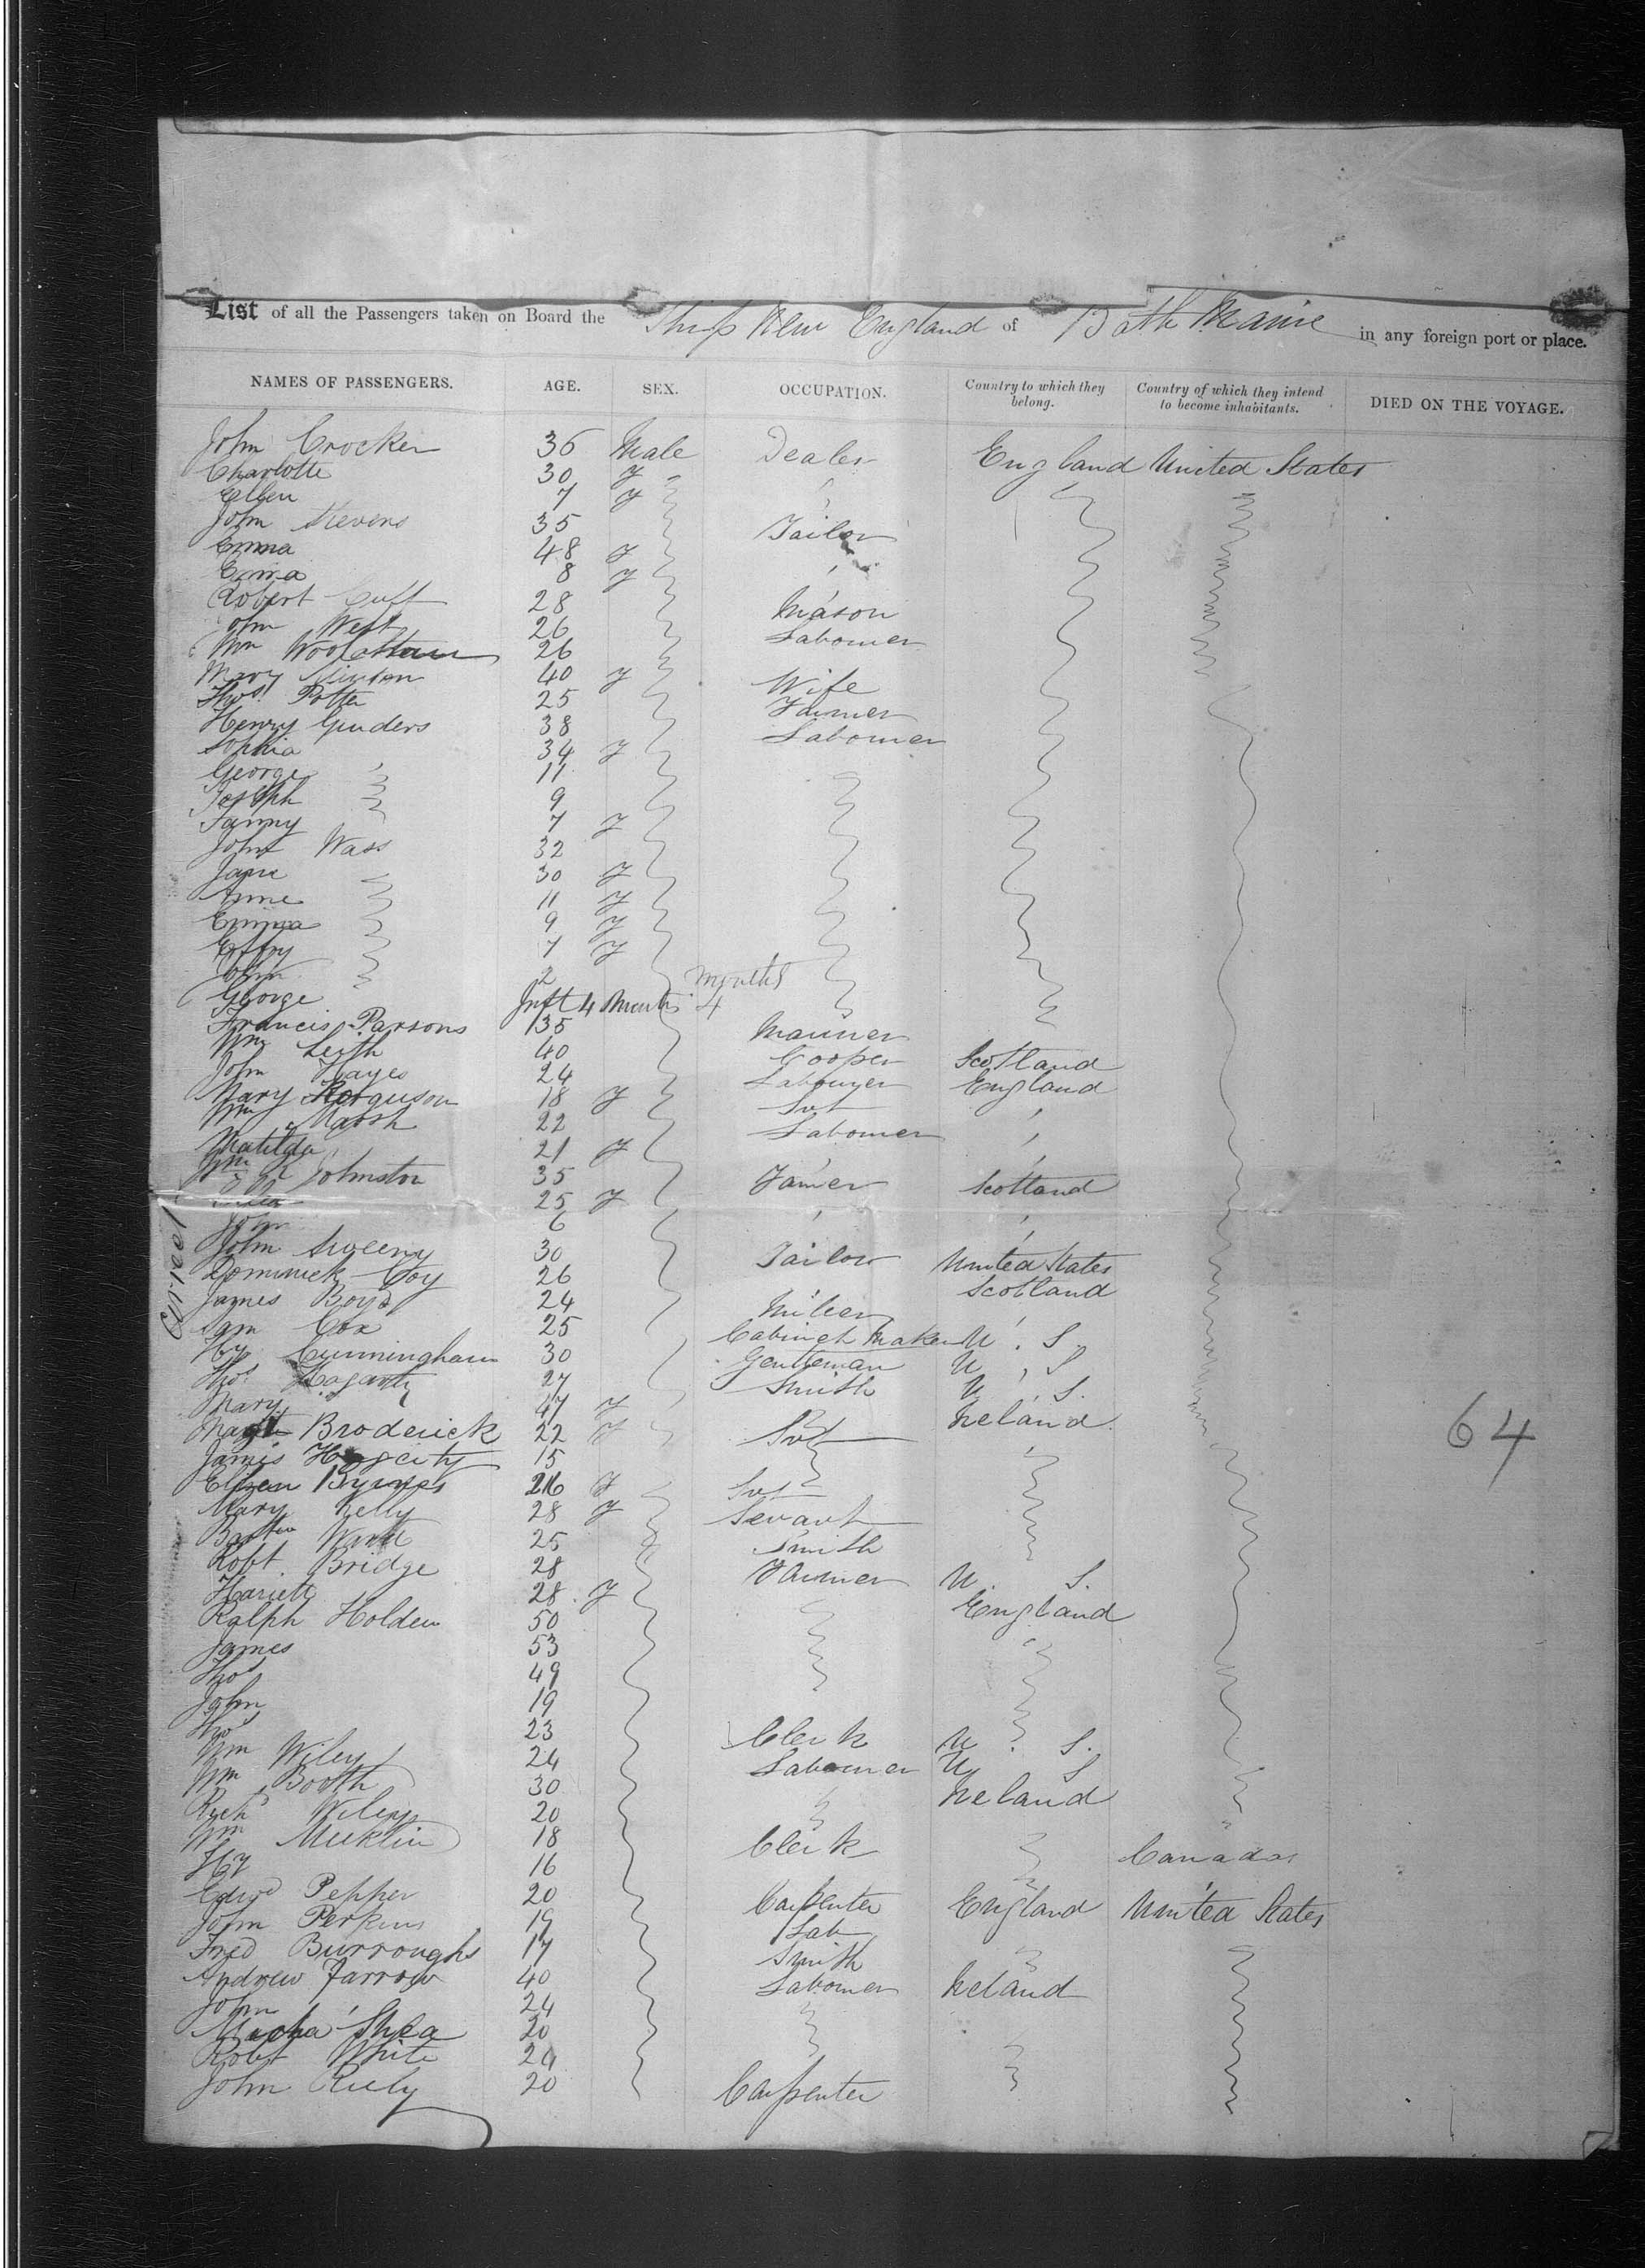 List of all the Passengers taken on Board the Ship New England of Bath Maine in any foreign port or place.
NAMES OF PASSENGERS. AGE. SEX. OCCUPATION. Country to which they belong. Country of which they intend to become inhabitants. DIED ON THE VOYAGE.
John Crocker 36 Male Dealer England United States
Charlotte 30 F
Ellen 7 F
John Stevens 35 Tailor
Emma 48 F
Emma 8 F
Robert Cuff 28 Mason
John West 26 Labourer
Wm 26
Mary Minton 40 F Wife
Thos. Potter 25 Farmer
Henry Genders 38 Labourer
Sophia 34 F
George 11
Joseph 9
Fanny 7 F
John Wass 32
Jane 30 F
Anne 11 F
Emma 9 F
Effry 7 F
John 2 months
George Inft 4 Months 4
Francis Parsons 35 Mariner
Wm Leith 40 Cooper Scotland
John Hayes 24 Labourer England
Mary Ferguson 18 F Svt
Wm Marsh 22 Labourer
Matilda 21 F
Wm Johnston 35 Farmer Scotland
25 F
John 6
John Sweeny 30 Tailor United States
Dominick Coy 26 Scotland
James Boyd 24 Miller
Sam Cox 25 Cabinet Maker U. S.
Hy Cunningham 30 Gentleman U, S
Thos. Hagarty 27 Smith U. S.
Mary 47 F Ireland
Magt Broderick 22 F Svt
James Hagerty 15
Ellen Byrnes 26 F Svt
Mary Kelly 28 F Servant
Ward 25 Smith
Robt. Bridge 28 Farmer U. S.
Hariett 28 F England
Ralph Holden 50
James 53
Thos 49
John 19
Thos 23 Clerk U. S.
Wm Wiley 24 Labourer U S
Wm Booth 30 Ireland
Richd Wiley 20
Wm Mucklin 18 Clerk Canada
Hy 16
Edwd Pepper 20 Carpenter England United States
John Perkins 19 Lab
Fred Burroughs 17 Smith
Andrew Farrow 40 Labourer Ireland
John 24
Micha Shea 20
Robt White 24
John Riely 20 Carpenter
64